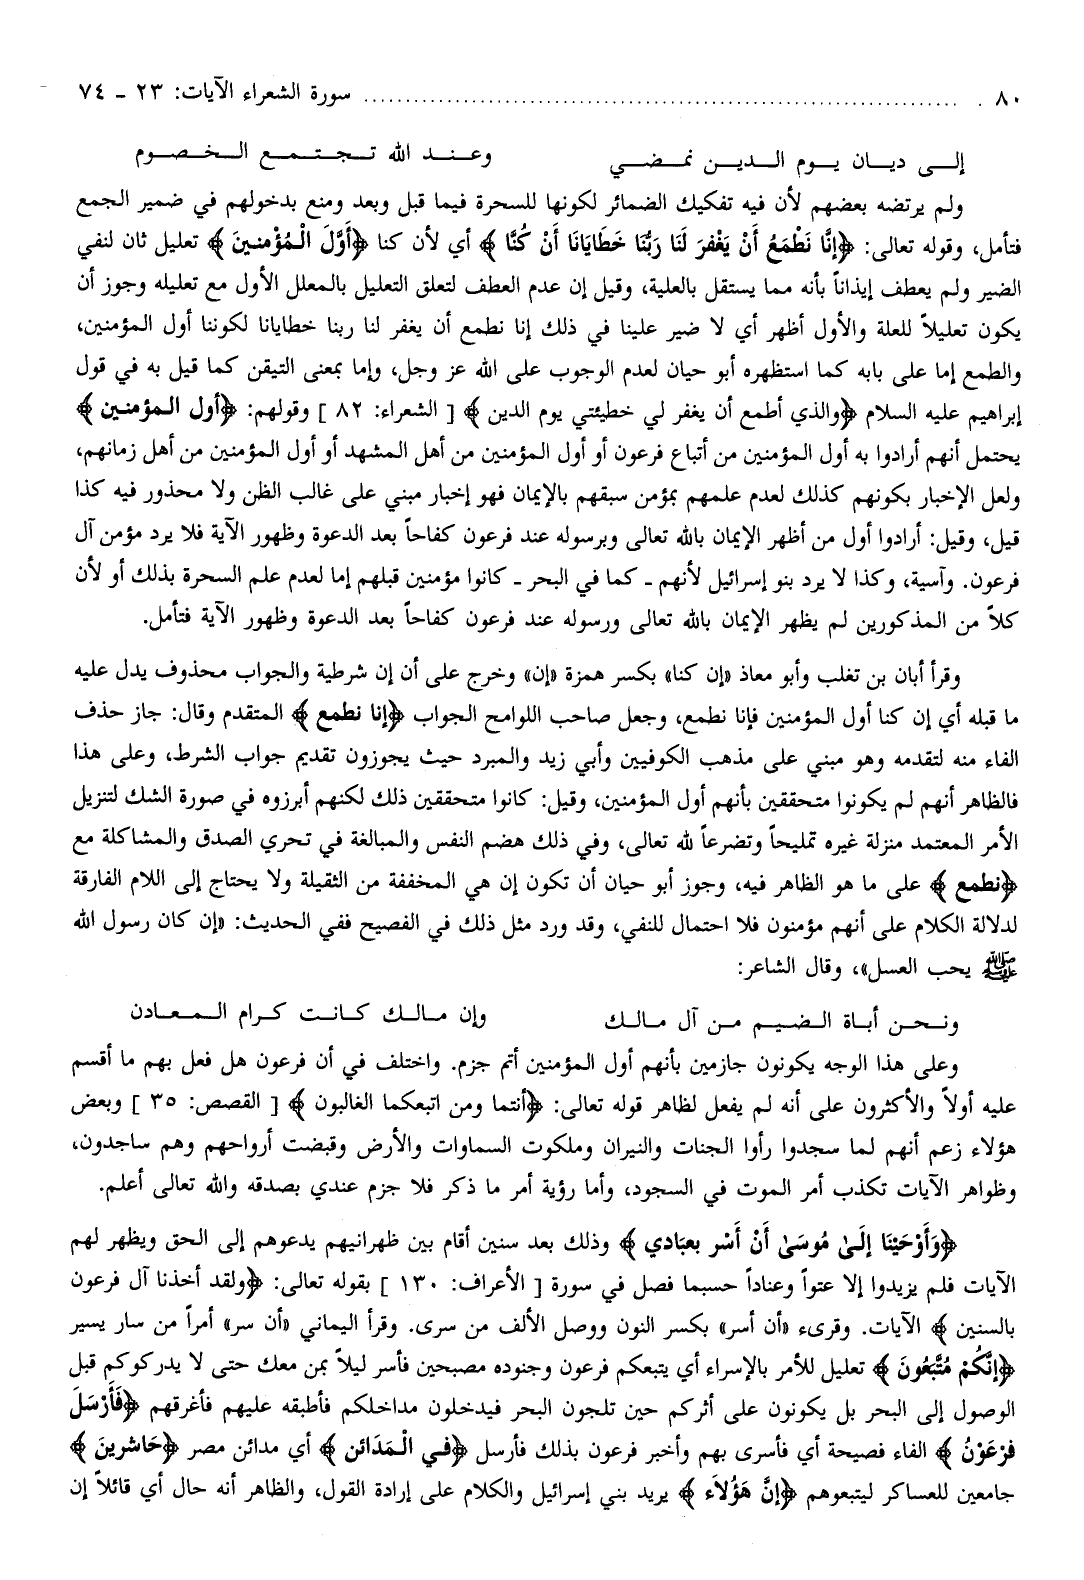 ٨٠ ............ سورة الشعراء الآيات: ٢٣ ـ ٧٤
إلـى ديـان يـوم الـديـن نمضـي وعـنـد الله تـجـتـمـع الـخـصـوم
ولم يرتضه بعضهم لأن فيه تفكيك الضمائر لكونها للسحرة فيما قبل وبعد ومنع بدخولهم في ضمير الجمع
فتأمل، وقوله تعالى: ﴿إِنَّا نَطْمَعُ أَنْ يَغْفرَ لَنَا رَبُّنَا خَطَايَانَا أَنْ كُنَّا﴾ أي لأن كنا ﴿أَوَّلَ الْمُؤْمنينَ﴾ تعليل ثان لنفي
الضير ولم يعطف إيذاناً بأنه مما يستقل بالعلية، وقيل إن عدم العطف لتعلق التعليل بالمعلل الأول مع تعليله وجوز أن
يكون تعليلاً للعلة والأول أظهر أي لا ضير علينا في ذلك إنا نطمع أن يغفر لنا ربنا خطايانا لكوننا أول المؤمنين،
والطمع إما على بابه كما استظهره أبو حيان لعدم الوجوب على الله عز وجل، وإما بمعنى التيقن كما قيل به في قول
إبراهيم عليه السلام ﴿والذي أطمع أن يغفر لي خطيئتي يوم الدين﴾ [ الشعراء: ٨٢ ] وقولهم: ﴿أول المؤمنين﴾
يحتمل أنهم أرادوا به أول المؤمنين من أتباع فرعون أو أول المؤمنين من أهل المشهد أو أول المؤمنين من أهل زمانهم،
ولعل الإخبار بكونهم كذلك لعدم علمهم بمؤمن سبقهم بالإيمان فهو إخبار مبني على غالب الظن ولا محذور فيه كذا
قيل، وقيل: أرادوا أول من أظهر الإيمان بالله تعالى وبرسوله عند فرعون كفاحاً بعد الدعوة وظهور الآية فلا يرد مؤمن آل
فرعون. وآسية، وكذا لا يرد بنو إسرائيل لأنهم ـ كما في البحر ـ كانوا مؤمنين قبلهم إما لعدم علم السحرة بذلك أو لأن
كلاً من المذكورين لم يظهر الإيمان بالله تعالى ورسوله عند فرعون كفاحاً بعد الدعوة وظهور الآية فتأمل.
وقرأ أبان بن تغلب وأبو معاذ «إن كنا» بكسر همزة «إن» وخرج على أن إن شرطية والجواب محذوف يدل عليه
ما قبله أي إن كنا أول المؤمنين فإنا نطمع، وجعل صاحب اللوامح الجواب ﴿إنا نطمع﴾ المتقدم وقال: جاز حذف
الفاء منه لتقدمه وهو مبني على مذهب الكوفيين وأبي زيد والمبرد حيث يجوزون تقديم جواب الشرط، وعلى هذا
فالظاهر أنهم لم يكونوا متحققين بأنهم أول المؤمنين، وقيل: كانوا متحققين ذلك لكنهم أبرزوه في صورة الشك لتنزيل
الأمر المعتمد منزلة غيره تمليحاً وتضرعاً لله تعالى، وفي ذلك هضم النفس والمبالغة في تحري الصدق والمشاكلة مع
﴿نطمع﴾ على ما هو الظاهر فيه، وجوز أبو حيان أن تكون إن هي المخففة من الثقيلة ولا يحتاج إلى اللام الفارقة
لدلالة الكلام على أنهم مؤمنون فلا احتمال للنفي، وقد ورد مثل ذلك في الفصيح ففي الحديث: «إن كان رسول الله
ﷺ يحب العسل»، وقال الشاعر:
ونـحـن أبـاة الـضـيـم مـن آل مـالـك وإن مـالـك كـانـت كـرام الـمـعـادن
وعلى هذا الوجه يكونون جازمين بأنهم أول المؤمنين أتم جزم. واختلف في أن فرعون هل فعل بهم ما أقسم
عليه أولاً والأكثرون على أنه لم يفعل لظاهر قوله تعالى: ﴿أنتما ومن اتبعكما الغالبون﴾ [ القصص: ٣٥ ] وبعض
هؤلاء زعم أنهم لما سجدوا رأوا الجنات والنيران وملكوت السماوات والأرض وقبضت أرواحهم وهم ساجدون،
وظواهر الآيات تكذب أمر الموت في السجود، وأما رؤية أمر ما ذكر فلا جزم عندي بصدقه والله تعالى أعلم.
﴿وَأَوْحَيْنَا إِلَىٰ مُوسَىٰ أَنْ أَسْر بعبَادي﴾ وذلك بعد سنين أقام بين ظهرانيهم يدعوهم إلى الحق ويظهر لهم
الآيات فلم يزيدوا إلا عتواً وعناداً حسبما فصل في سورة [ الأعراف: ١٣٠ ] بقوله تعالى: ﴿ولقد أخذنا آل فرعون
بالسنين﴾ الآيات. وقرىء «أن أسر» بكسر النون ووصل الألف من سرى. وقرأ اليماني «أن سر» أمراً من سار يسير
﴿إِنَّكُمْ مُتَّبَعُونَ﴾ تعليل للأمر بالإسراء أي يتبعكم فرعون وجنوده مصبحين فأسر ليلاً بمن معك حتى لا يدركوكم قبل
الوصول إلى البحر بل يكونون على أثركم حين تلجون البحر فيدخلون مداخلكم فأطبقه عليهم فأغرقهم ﴿فَأَرْسَلَ
فرْعَوْنُ﴾ الفاء فصيحة أي فأسرى بهم وأخبر فرعون بذلك فأرسل ﴿في الْمَدَائن﴾ أي مدائن مصر ﴿حَاشرينَ﴾
جامعين للعساكر ليتبعوهم ﴿إِنَّ هَؤُلاَء﴾ يريد بني إسرائيل والكلام على إرادة القول، والظاهر أنه حال أي قائلاً إن